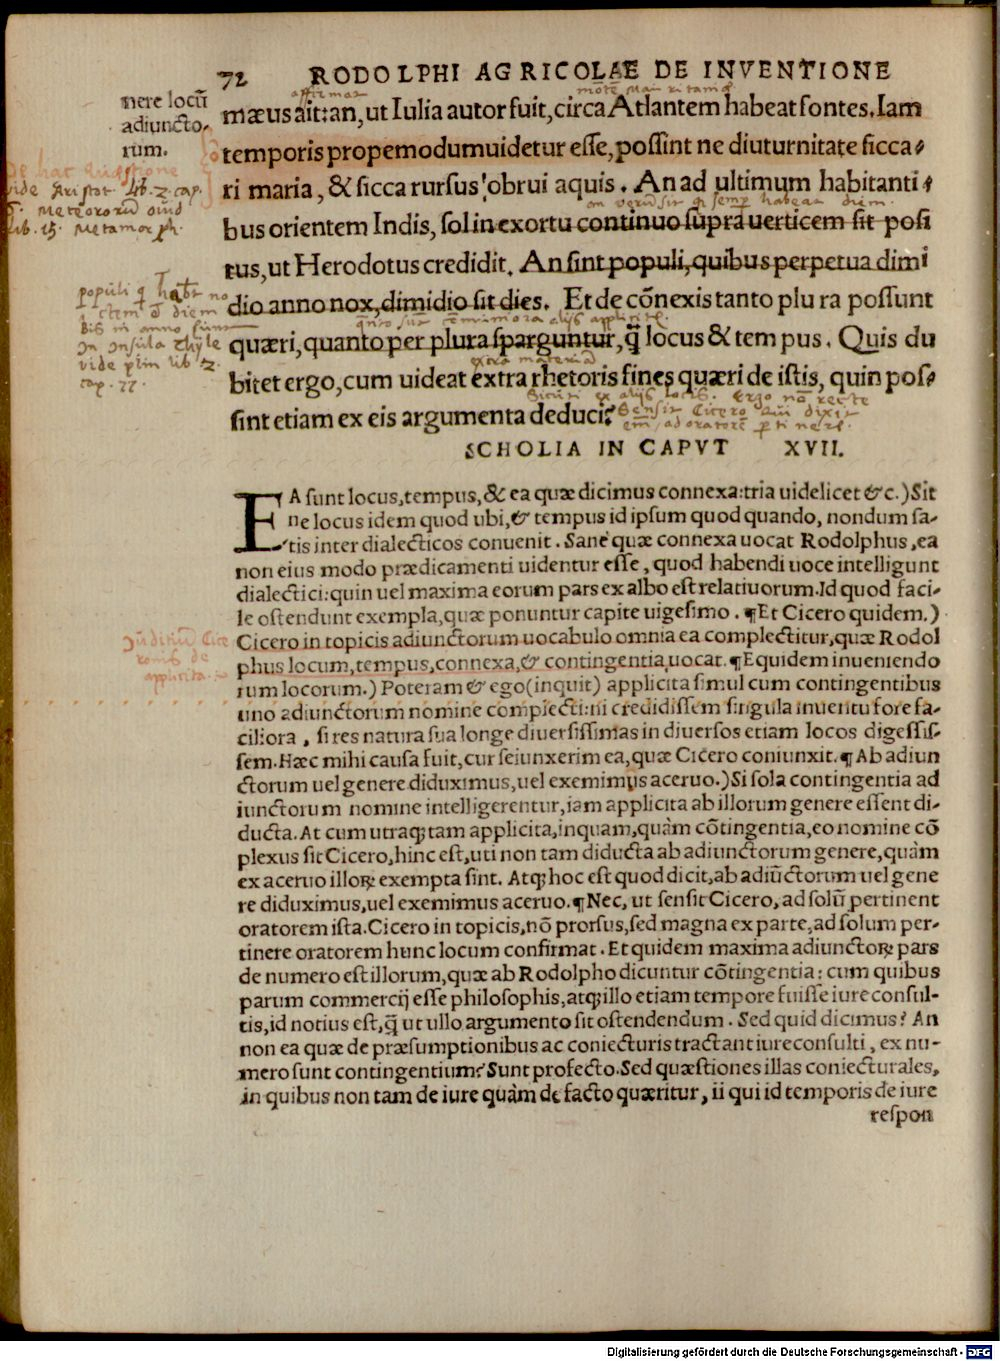 72 RODOLPHI AGRICOLAE DE INVENTIONE
nere locū
adiuncto-
rum.
affirmat
mæus ait: an, ut Iulia autor fuit, circa Atlantem habeat fontes. Iam
temporis propemodum uidetur esse, possint ne diuturnitate sicca-
ri maria, & sicca rursus obrui aquis. An ad ultimum habitanti-
bus orientem Indis, sol in exortu continuo supra uerticem sit posi
tus, ut Herodotus credidit. An sint populi, quibus perpetua dimi
dio anno nox, dimidio sit dies. Et de cōnexis tanto plura possunt
quæri, quanto per plura sparguntur, q̃ locus & tempus. Quis du
extra materiā
bitet ergo, cum uideat extra rhetoris fines quæri de istis, quin pos-
sint etiam ex eis argumenta deduci?
Ergo nō recte
sensit Cicero
vide Aristot. lib. 2 cap.
Meteororū
lib. 15. Metamorph.
populi q
diem
in anno
In insula Thyle
vide plin lib 2.
cap.
SCHOLIA IN CAPVT XVII.
EA sunt locus, tempus, & ea quæ dicimus connexa: tria uidelicet &c.) Sit
ne locus idem quod ubi, & tempus id ipsum quod quando, nondum sa-
tis inter dialecticos conuenit. Sanè quæ connexa uocat Rodolphus, ea
non eius modo prædicamenti uidentur esse, quod habendi uoce intelligunt
dialectici: quin uel maxima eorum pars ex albo est relatiuorum. Id quod faci-
le ostendunt exempla, quæ ponuntur capite uigesimo. ¶Et Cicero quidem.)
Cicero in topicis adiunctorum uocabulo omnia ea complectitur, quæ Rodol
phus locum, tempus, connexa, & contingentia uocat. ¶Equidem inueniendo
rum locorum.) Poteram & ego (inquit) applicita simul cum contingentibus
uno adiunctorum nomine complecti: ni credidissem singula inuentu fore fa-
ciliora, si res natura sua longe diuersissimas in diuersos etiam locos digessis-
sem. Hæc mihi causa fuit, cur seiunxerim ea, quæ Cicero coniunxit. ¶Ab adiun
ctorum uel genere diduximus, uel exemimus aceruo.) Si sola contingentia ad
iunctorum nomine intelligerentur, iam applicita ab illorum genere essent di-
ducta. At cum utraq; tam applicita, inquam, quàm cōtingentia, eo nomine cō
plexus sit Cicero, hinc est, uti non tam diducta ab adiunctorum genere, quàm
ex aceruo illoꝝ exempta sint. Atq; hoc est quod dicit, ab adiūctorum uel gene
re diduximus, uel exemimus aceruo. ¶Nec, ut sensit Cicero, ad solū pertinent
oratorem ista. Cicero in topicis, nō prorsus, sed magna ex parte, ad solum per-
tinere oratorem hunc locum confirmat. Et quidem maxima adiunctoꝝ pars
de numero est illorum, quæ ab Rodolpho dicuntur cōtingentia: cum quibus
parum commercij esse philosophis, atq; illo etiam tempore fuisse iureconsul-
tis, id notius est, q̃ ut ullo argumento sit ostendendum. Sed quid dicimus? An
non ea quæ de præsumptionibus ac coniecturis tractant iureconsulti, ex nu-
mero sunt contingentium? Sunt profecto. Sed quæstiones illas coniecturales,
in quibus non tam de iure quàm de facto quæritur, ii qui id temporis de iure
respon
Iuditiū Cice
ronis de
applicita.
Digitalisierung gefördert durch die Deutsche Forschungsgemeinschaft - DFG